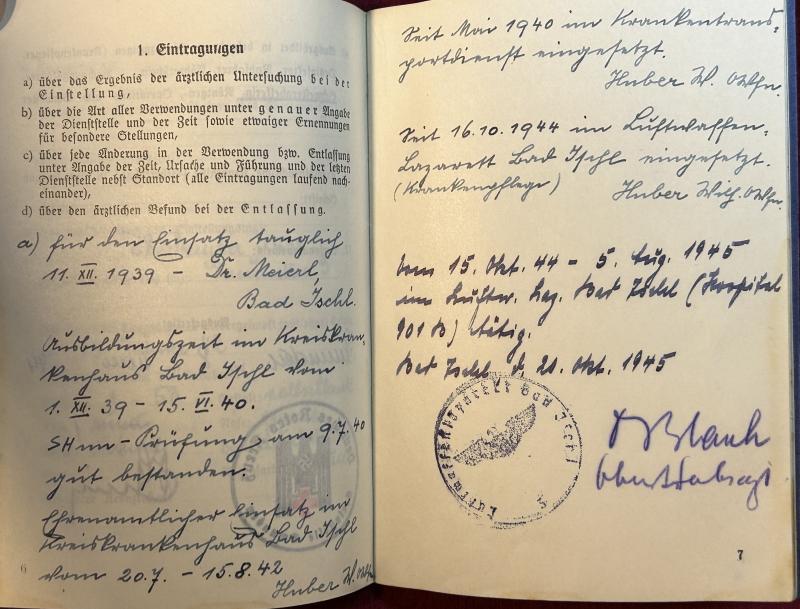 1. Eintragungen
a) über das Ergebnis der ärztlichen Untersuchung bei der
Einstellung,
b) über die Art aller Verwendungen unter genauer Angabe
der Dienststelle und der Zeit sowie etwaiger Ernennungen
für besondere Stellungen,
c) über jede Änderung in der Verwendung bzw. Entlassung
unter Angabe der Zeit, Ursache und Führung und der letzten
Dienststelle nebst Standort (alle Eintragungen laufend nach-
einander),
d) über den ärztlichen Befund bei der Entlassung.
a) für den Einsatz tauglich
11. XII. 1939 – Dr. Meierl,
Bad Ischl.
Ausbildungszeit im Kreiskran-
kenhaus Bad Ischl vom
1. XII. 39 – 15. VI. 40.
SHinn-Prüfung am 9.7.40
gut bestanden.
Ehrenamtlicher Einsatz im
Kreiskrankenhaus Bad Ischl
vom 20.7. – 15.8.42
Huber W.
6
Seit Mai 1940 im Krankentrans-
portdienst eingesetzt.
Huber W.
Seit 16.10.1944 im Luftwaffen-
Lazarett Bad Ischl eingesetzt.
(Krankenpflege) Huber Wilh.
Vom 15. Okt. 44 – 5. Aug. 1945
im Luftw. Laz. Bad Ischl (Hospital
901 B) tätig.
Bad Ischl d. 20. Okt. 1945
Luftwaffenlazarett Bad Ischl
Oberstabsarzt
7